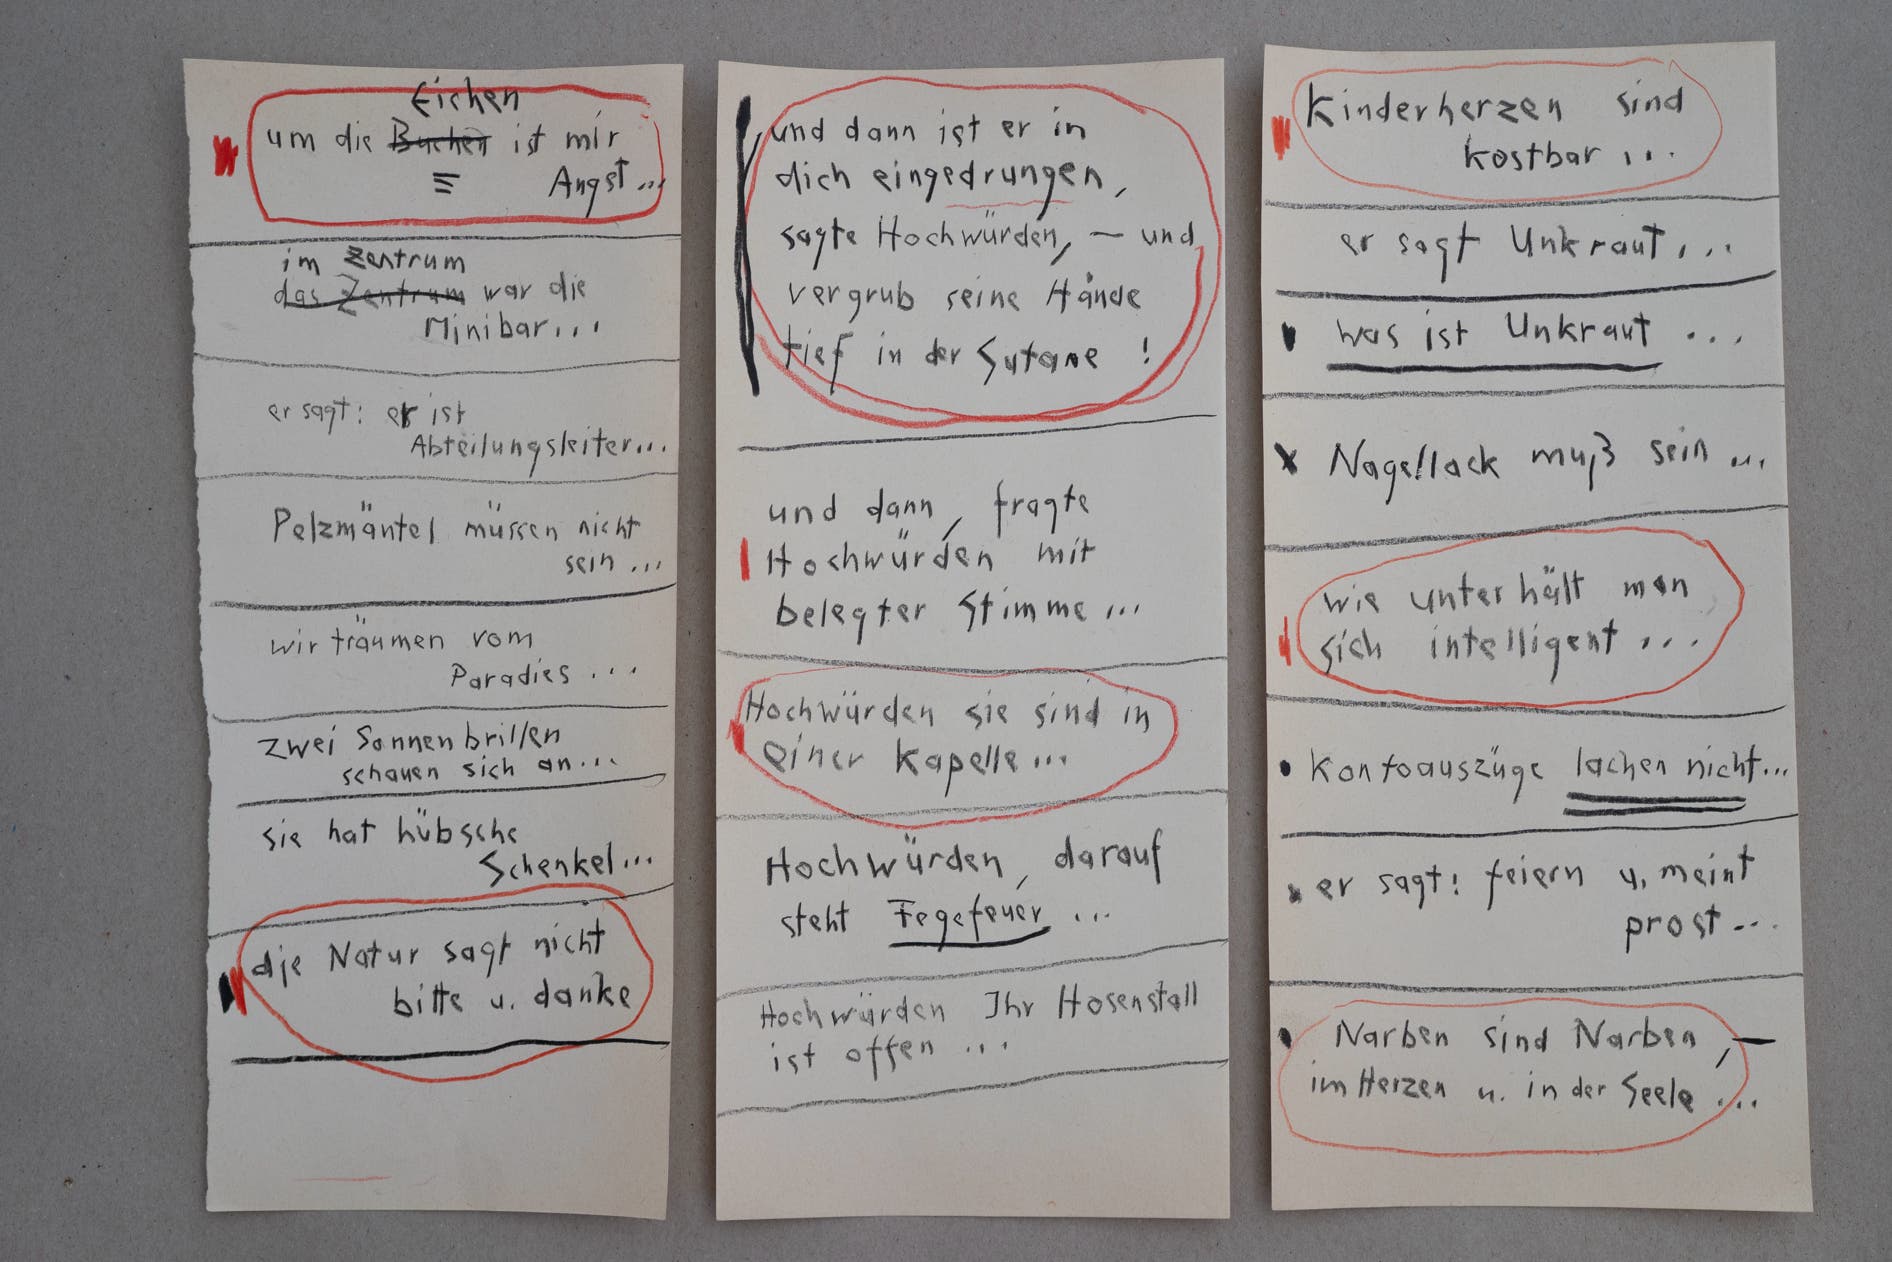 Eichen
um die Buchen ist mir
Angst...
im Zentrum
das Zentrum war die
Minibar...
er sagt: er ist
Abteilungsleiter...
Pelzmäntel müssen nicht
sein...
wir träumen vom
Paradies...
zwei Sonnenbrillen
schauen sich an...
sie hat hübsche
Schenkel...
die Natur sagt nicht
bitte u. danke
und dann ist er in
dich eingedrungen,
sagte Hochwürden, – und
vergrub seine Hände
tief in der Sutane !
und dann, fragte
Hochwürden mit
belegter Stimme...
Hochwürden sie sind in
einer Kapelle...
Hochwürden, darauf
steht Fegefeuer...
Hochwürden Ihr Hosenstall
ist offen...
Kinderherzen sind
kostbar...
er sagt Unkraut...
was ist Unkraut...
Nagellack muß sein...
wie unterhält man
sich intelligent...
Kontoauszüge lachen nicht...
er sagt: feiern u. meint
prost...
Narben sind Narben, –
im Herzen u. in der Seele...